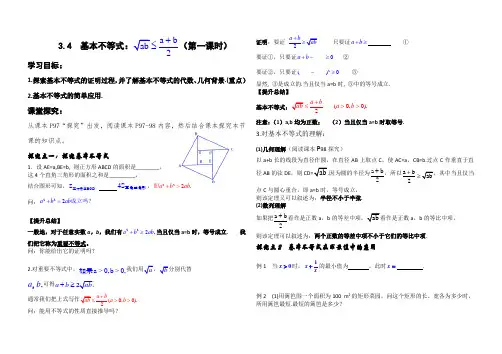 3.4 基本不等式:√ab ≤ (a+b)/2(第一课时)
学习目标:
1.探索基本不等式的证明过程,并了解基本不等式的代数、几何背景.(重点)
2.基本不等式的简单应用.
课堂探究:
从课本P97“探究”出发,阅读课本P97-98内容,然后结合课本探究本节课的知识点。
探究点一:探究基本不等式
1、设AE=a,BE=b,则正方形ABCD的面积是________,
这4个直角三角形的面积之和是_________,
结合图可知,
即a²+b²>2ab.
问,a²+b²=2ab成立吗?
【提升总结】
一般地,对于任意实数 a,b,我们有a²+b²≥2ab,当且仅当a=b时,等号成立. 我们把它称为重要不等式。
问:你能给出它的证明吗?
2.对重要不等式中,如果a>0,b>0,我们用√a、√b分别代替a、b,可得a+b≥2√ab,
通常我们把上式写作√ab≤(a+b)/2(a>0,b>0).
问:能用不等式的性质直接推导吗?
证明:要证 (a+b)/2≥√ab 只要证a+b≥ ①
要证①,只要证a+b− ≥0 ②
要证②,只要证( − )²≥0 ③
显然,③是成立的.当且仅当a=b时, ③中的等号成立.
【提升总结】
基本不等式:√ab≤(a+b)/2 (a>0,b>0).
注意:(1)a,b均为正数; (2)当且仅当a=b时取等号.
3.对基本不等式的理解:
(1)几何理解(阅读课本P98探究)
以a+b长的线段为直径作圆,在直径AB上取点C,使AC=a,CB=b.过点C作垂直于直径AB的弦DE,则CD=√ab,因为圆的半径为(a+b)/2,所以(a+b)/2≥√ab,其中当且仅当C与圆心重合,即a=b时,等号成立.
则该定理又可以叙述为:半径不小于半弦.
(2)数列理解
如果把(a+b)/2看作是正数a、b的等差中项,√ab看作是正数a、b的等比中项,
则该定理可以叙述为:两个正数的等差中项不小于它们的等比中项.
探究点2 基本不等式在求最值中的应用
例1 当x>0时,x+1/x的最小值为 ,此时x= .
例2 (1)用篱笆围一个面积为100 m²的矩形菜园,问这个矩形的长、宽各为多少时,所用篱笆最短.最短的篱笆是多少?